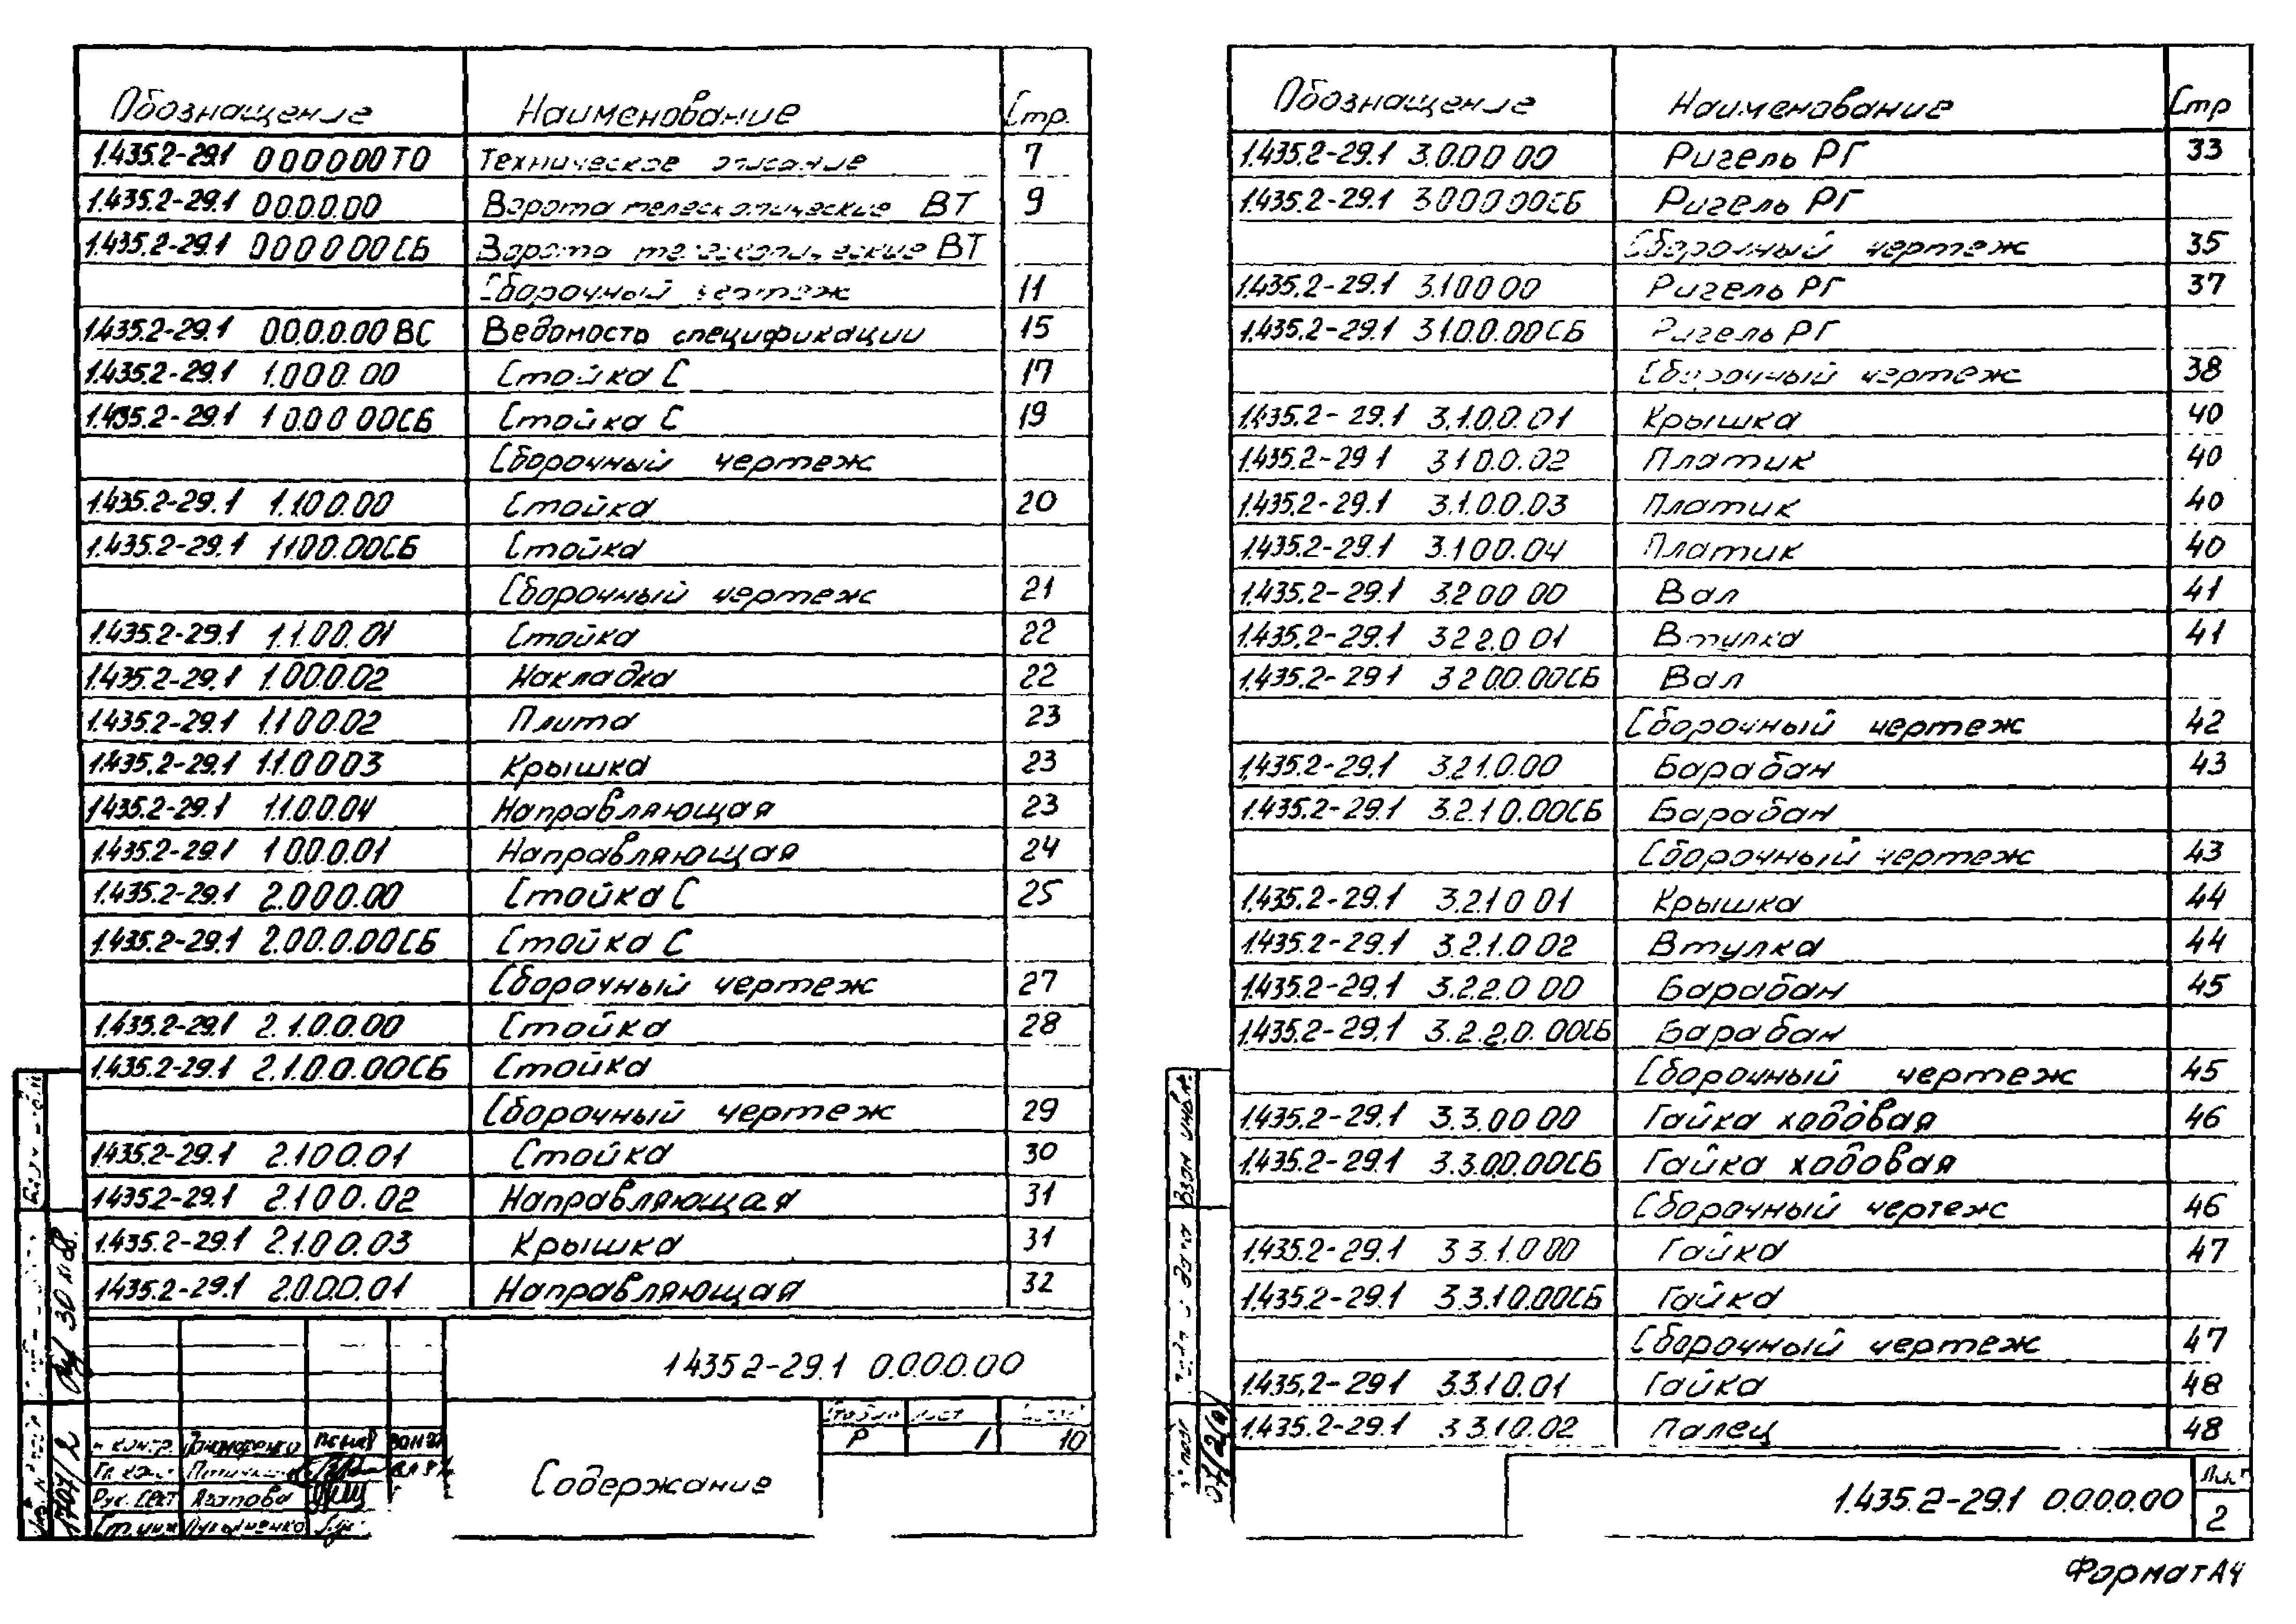 Обозначение Наименование Стр.
1.435.2-29.1 0000.00ТО Техническое описание 7
1.435.2-29.1 0.0.0.0.00 Ворота телескопические ВТ 9
1.435.2-29.1 0000.00СБ Ворота телескопические ВТ
Сборочный чертеж 11
1.435.2-29.1 0.0.0.0.00ВС Ведомость спецификации 15
1.435.2-29.1 1.000.00 Стойка С 17
1.435.2-29.1 1 0.0 0 00СБ Стойка С 19
Сборочный чертеж
1.435.2-29.1 1.1.0 0.00 Стойка 20
1.435.2-29.1 1.1.0 0.00СБ Стойка
Сборочный чертеж 21
1.435.2-29.1 1.1.0 0.01 Стойка 22
1.435.2-29.1 1.0.0.0.02 Накладка 22
1.435.2-29.1 1.1 0 0.02 Плита 23
1.435.2-29.1 1.1.0 0 03 Крышка 23
1.435.2-29.1 1.1.0.0.04 Направляющая 23
1.435.2-29.1 1 0.0.0.01 Направляющая 24
1.435.2-29.1 2.0 0 0.00 Стойка С 25
1.435.2-29.1 2.0 0.0.00СБ Стойка С
Сборочный чертеж 27
1.435.2-29.1 2.1.0.0.00 Стойка 28
1.435.2-29.1 2.1.0.0.00СБ Стойка
Сборочный чертеж 29
1.435.2-29.1 2.1 0 0.01 Стойка 30
1.435.2-29.1 2.1 0 0.02 Направляющая 31
1.435.2-29.1 2.1.0 0.03 Крышка 31
1.435.2-29.1 2.0.0.0.01 Направляющая 32
1.435 2-29.1 0.0.0.0.00
Р 1 10
Содержание
н контр.
Рук. сект Агапова
1707/2
Обозначение Наименование Стр
1.435.2-29.1 3.0.0 0 00 Ригель РГ 33
1.435.2-29.1 3 0 0 0 00СБ Ригель РГ
Сборочный чертеж 35
1.435.2-29.1 3.1 0 0 00 Ригель РГ 37
1.435.2-29.1 3.1.0.0.00СБ Ригель РГ
Сборочный чертеж 38
1.435.2-29.1 3.1.0 0.01 Крышка 40
1.435.2-29 1 3 1 0.0.02 Платик 40
1.435.2-29.1 3.1.0 0.03 Платик 40
1.435.2-29.1 3.1 0 0.04 Платик 40
1.435.2-29.1 3.2 0 0 00 Вал 41
1.435.2-29.1 3 2 2.0 01 Втулка 41
1.435.2-29 1 3 2 0.0.00СБ Вал
Сборочный чертеж 42
1.435.2-29.1 3.2 1.0.00 Барабан 43
1.435.2-29.1 3.2.1 0.00СБ Барабан
Сборочный чертеж 43
1.435.2-29.1 3.2.1 0 01 Крышка 44
1.435.2-29.1 3.2.1.0 02 Втулка 44
1.435.2-29.1 3.2.2.0 00 Барабан 45
1.435.2-29.1 3.2.2.0.00СБ Барабан
Сборочный чертеж 45
1.435.2-29.1 3.3.0 0 00 Гайка ходовая 46
1.435.2-29.1 3.3.0.0.00СБ Гайка ходовая
Сборочный чертеж 46
1.435.2-29.1 3 3.1.0 00 Гайка 47
1.435.2-29.1 3.3.1 0.00СБ Гайка
Сборочный чертеж 47
1.435.2-29 1 3.3.1 0.01 Гайка 48
1.435.2-29.1 3 3.1 0.02 Палец 48
1.435.2-29.1 0.0.0.0.00
Лист
2
Формат А4